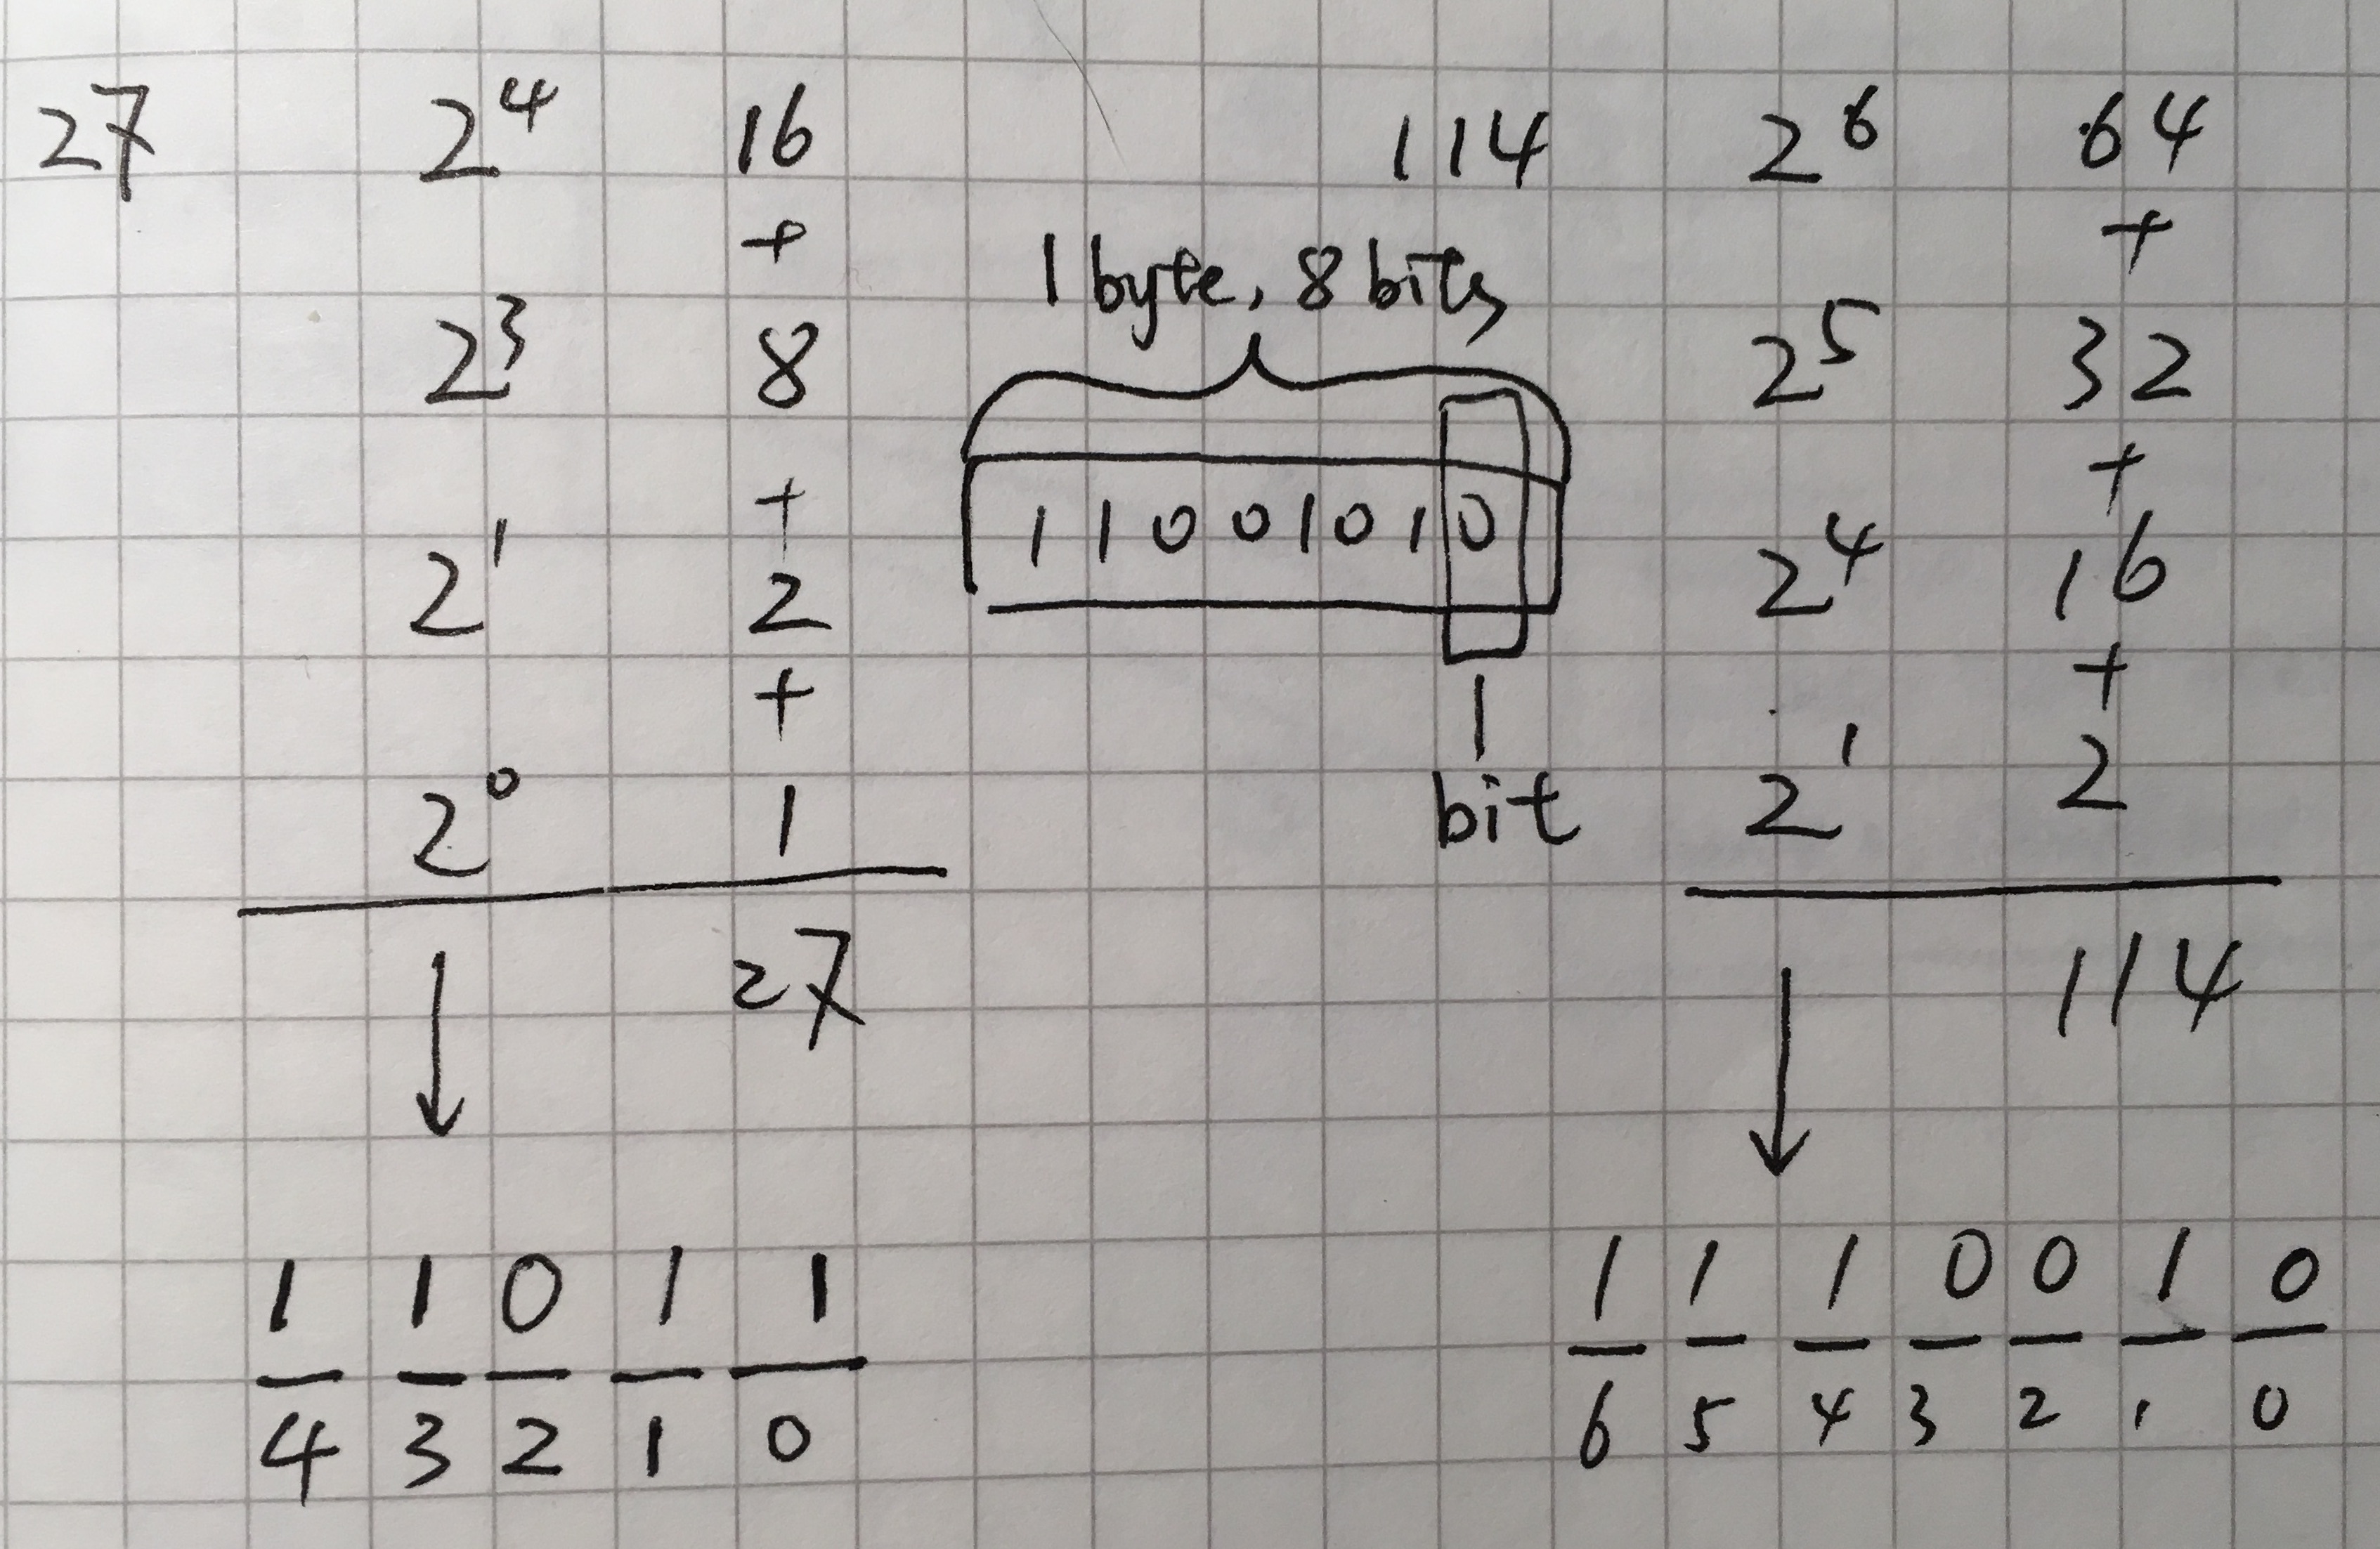 27 2⁴ 16
+
2³ 8
+
2¹ 2
+
2⁰ 1
27
↓
1 1 0 1 1
4 3 2 1 0
1 byte, 8 bits
1 1 0 0 1 0 1 0
bit
114 2⁶ 64
+
2⁵ 32
+
2⁴ 16
+
2¹ 2
114
↓
1 1 1 0 0 1 0
6 5 4 3 2 1 0